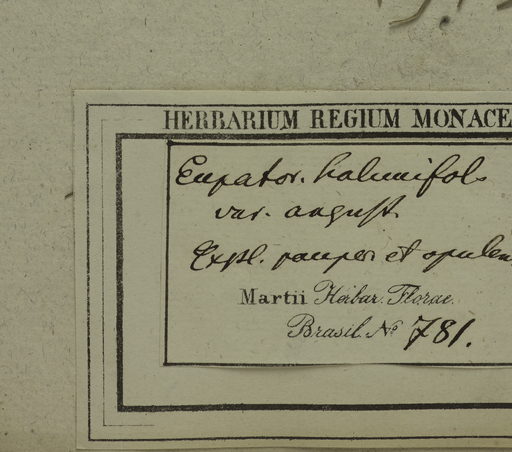 HERBARIUM REGIUM MONACE
Eupator. halimifol.
var. angust.
Expl. pauper et opulen
Martii Herbar. Florae
Brasil. No. 781.